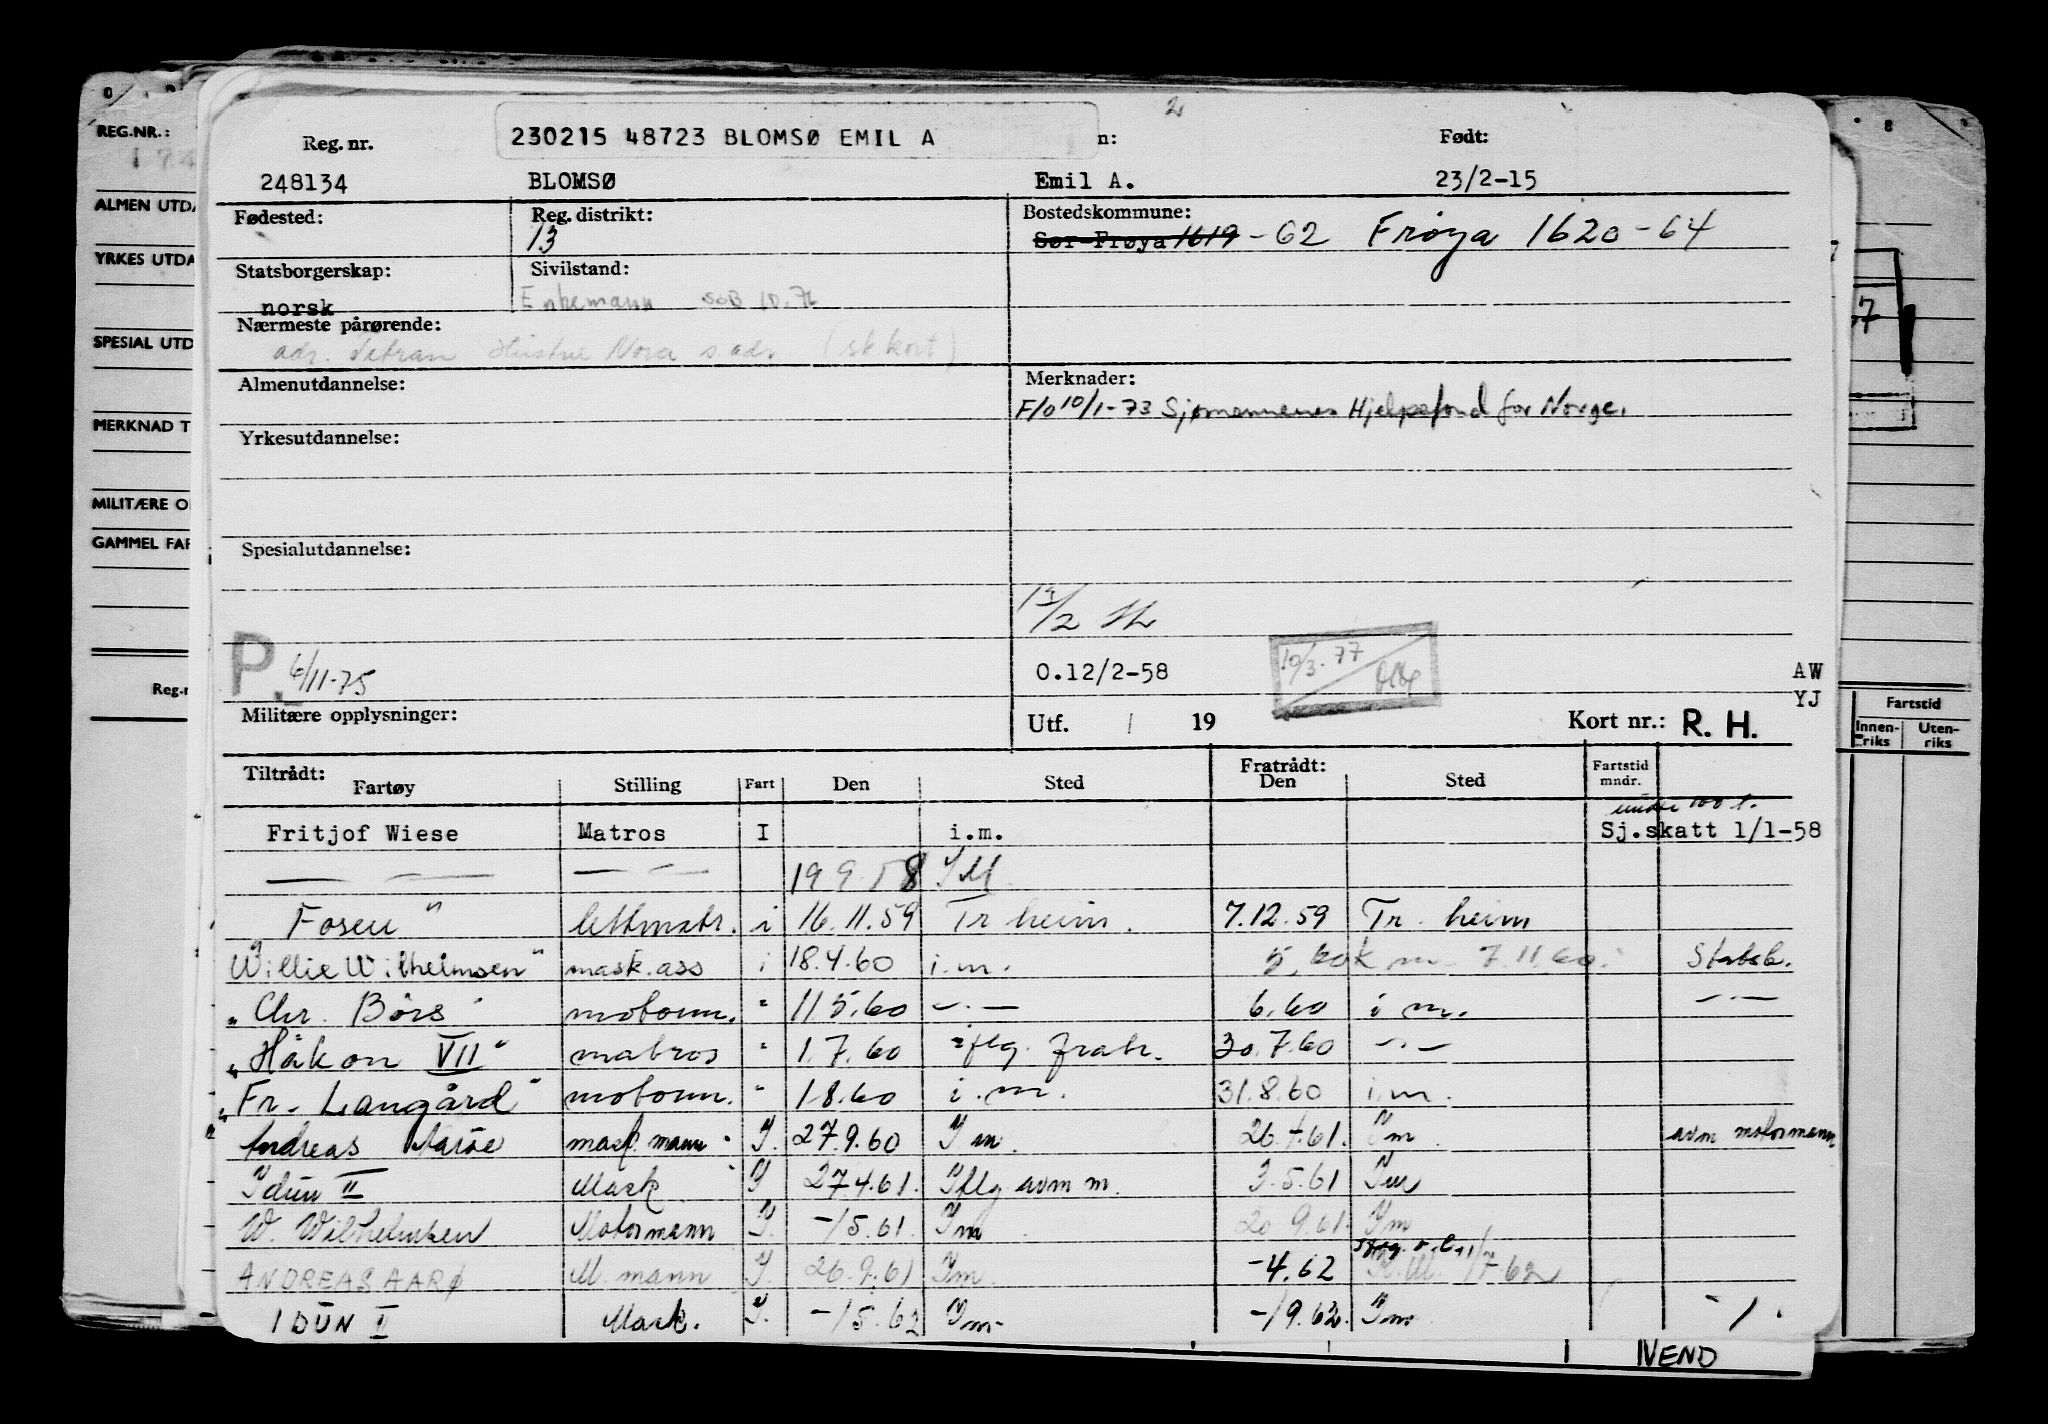 2
Reg. nr. 230215 48723 BLOMSØ EMIL A n: Født:
248134 BLOMSØ Emil A. 23/2-15
Fødested: Reg. distrikt: Bostedskommune:
13 Sør-Frøya 1619 -62 Frøya 1620-64
Statsborgerskap: Sivilstand:
norsk Enkemann SOB 10.72
Nærmeste pårørende:
adr. Hustru Nora s. adr (sk kort)
Almenutdannelse: Merknader:
F/o 10/1-73 Sjømennenes Hjelpefond for Norge.
Yrkesutdannelse:
Spesialutdannelse:
13/2
P. 6/11-75 O.12/2-58 10/3-77 AW
YJ
Militære opplysninger: Utf. / 19 Kort nr.: R. H.
Tiltrådt: Fratrådt: Fartstid
Fartøy Stilling Fart Den Sted Den Sted mndr.
under 100 t.
Fritjof Wiese Matros I i.m. Sj.skatt 1/1-58
— — — — 19 9.58 IM
Fosen" lettmatr. i 16.11.59 Tr heim. 7.12.59 Tr. heim
"Willie Wilhelmsen" mask.ass i 18.4.60 i.m. 7.11.60. Statsb.
"Chr. Börs" motorm. " 11 5.60 —.— 6.60 i m. —.—
"Håkon VII" matros " 1.7.60 iflg. fratr. 30.7.60 —.—
"Fr. Langård" motorm. " 1.8.60 i.m. 31.8.60 i.m.
" Andreas Aaröe mask. mann I. 27.9.60 I m. 26.4.61. I m avm motormann
Idun II Mask. I 27.4.61. Iflg avm m. 3.5.61 Im
W. Wilhelmsen Motormann I. -/5.61. Im 20 9.61. Im
ANDREAS AARØ M. mann I. 26.9.61 Im. -4.62 /7-62
IDUN I Mask. I. -/5.62 Im. -/9.62. Im
VEND
REG.NR.:
ALMEN UTDA
YRKES UTDA
SPECIAL UTD
MERKNAD T
MILITÆRE O
GAMMEL FAR
Reg.n
Fartstid
Innen-
riks
Uten-
riks